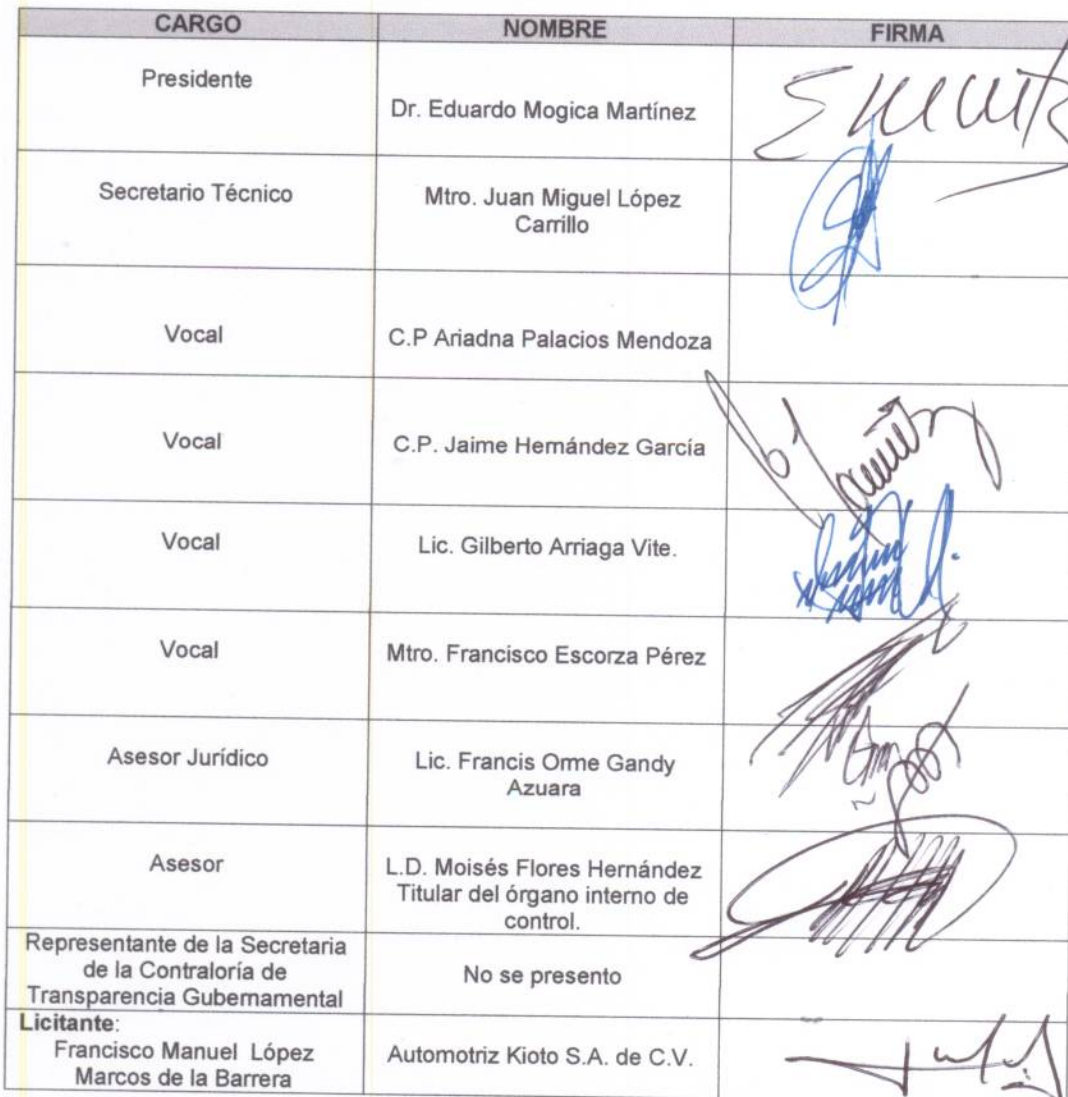 CARGO NOMBRE FIRMA
Presidente
Dr. Eduardo Mogica Martínez
Secretario Técnico
Mtro. Juan Miguel López
Carrillo
Vocal
C.P Ariadna Palacios Mendoza
Vocal
C.P. Jaime Hernández García
Vocal
Lic. Gilberto Arriaga Vite.
Vocal
Mtro. Francisco Escorza Pérez
Asesor Jurídico
Lic. Francis Orme Gandy
Azuara
Asesor
L.D. Moisés Flores Hernández
Titular del órgano interno de
control.
Representante de la Secretaria
de la Contraloría de
Transparencia Gubernamental
No se presento
Licitante:
Francisco Manuel López
Marcos de la Barrera
Automotriz Kioto S.A. de C.V.